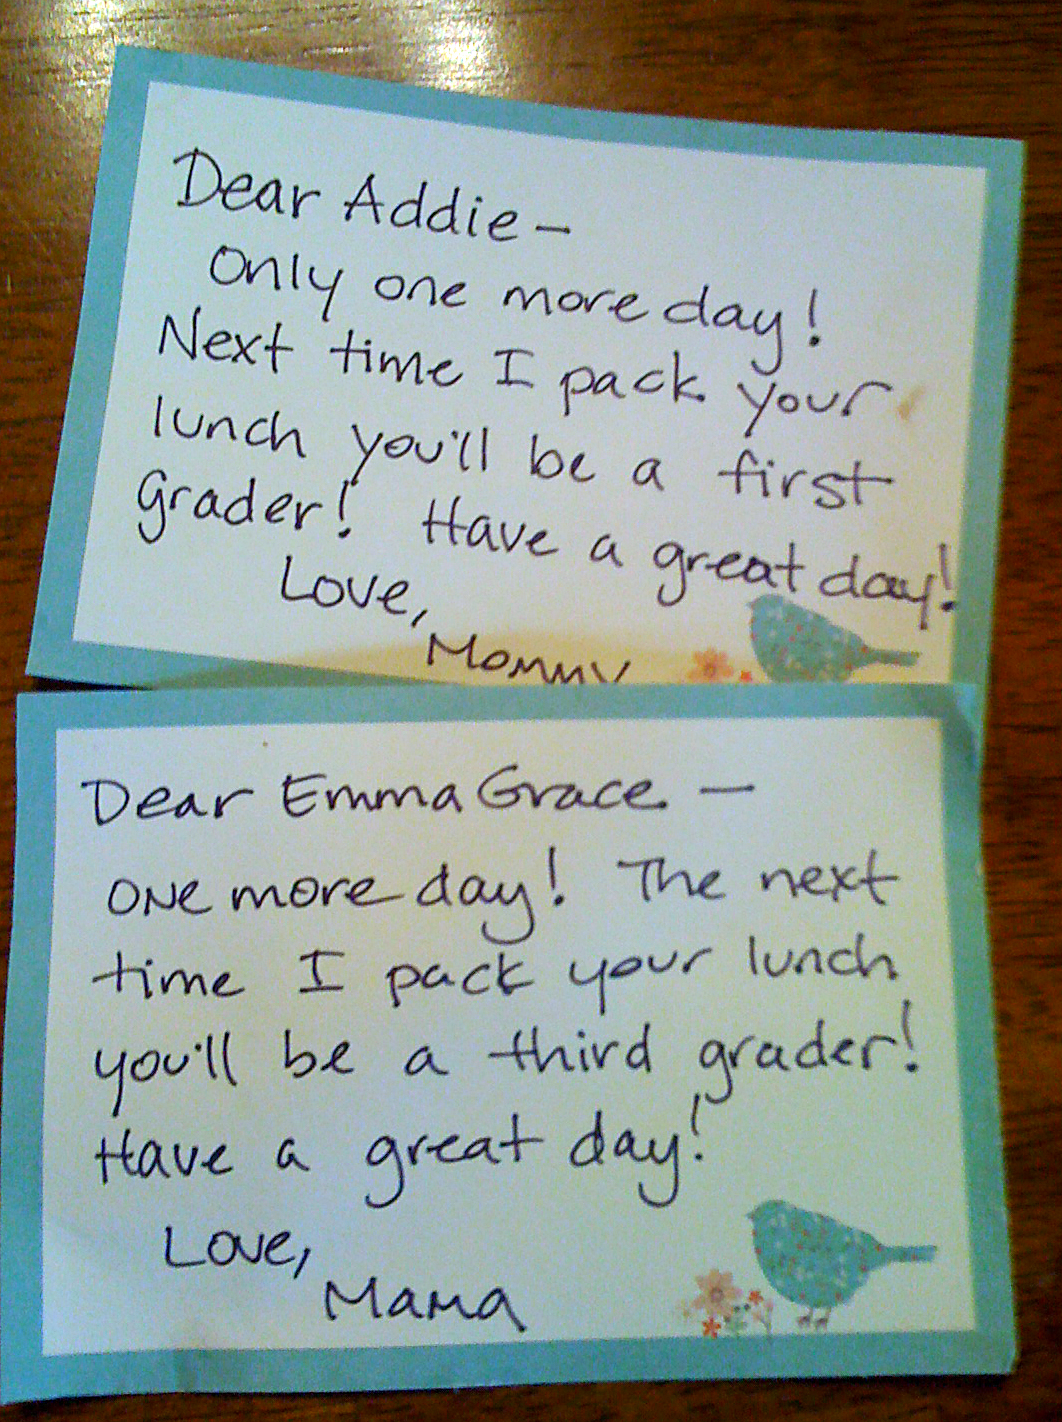 Dear Addie –
Only one more day!
Next time I pack your
lunch you'll be a first
Grader! Have a great day!
Love,
Mommy
Dear Emma Grace –
One more day! The next
time I pack your lunch
you'll be a third grader!
Have a great day!
Love,
Mama